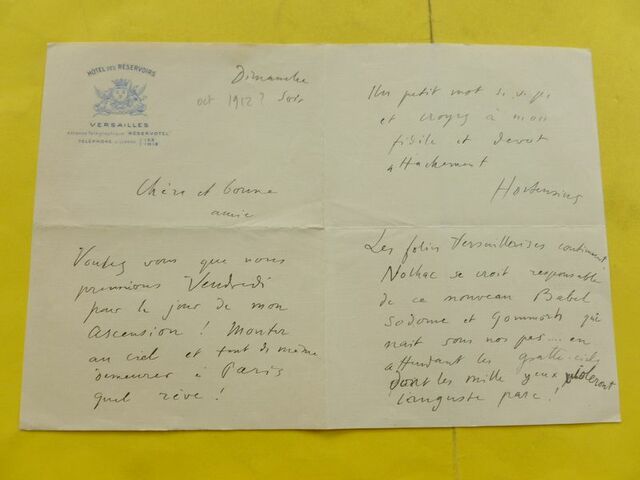 HÔTEL DES RÉSERVOIRS
VERSAILLES
Adresse Télégraphique "RÉSERVOTEL"
TÉLÉPHONE
Dimanche
oct 1912? Soir
Chère et bonne
amie
Voulez vous que nous
prenions Vendredi
pour le jour de mon
ascension! Monter
au ciel et tout de même
demeurer à Paris
quel rêve!
Un petit mot s. v. p.
et croyez à mon
fidèle et dévot
attachement
Hortensius
Les folies Versaillaises continuent
Nolhac se croit responsable
de ce nouveau Babel
Sodome et Gommorhe qui
nait sous nos pas.... en
attendant les gratte-ciels
dont les mille yeux violeront
l'auguste parc!